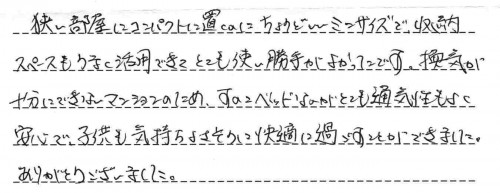 狭い部屋にコンパクトに置くのにちょうどいいミニサイズで、収納
スペースもうまく活用できてとても使い勝手がよかったです。換気が
十分にできないマンションのため、すのこベッドなのがとても通気性もよく
安心で、子供も気持ちよさそうに快適に過ごすことができました。
ありがとうございました。